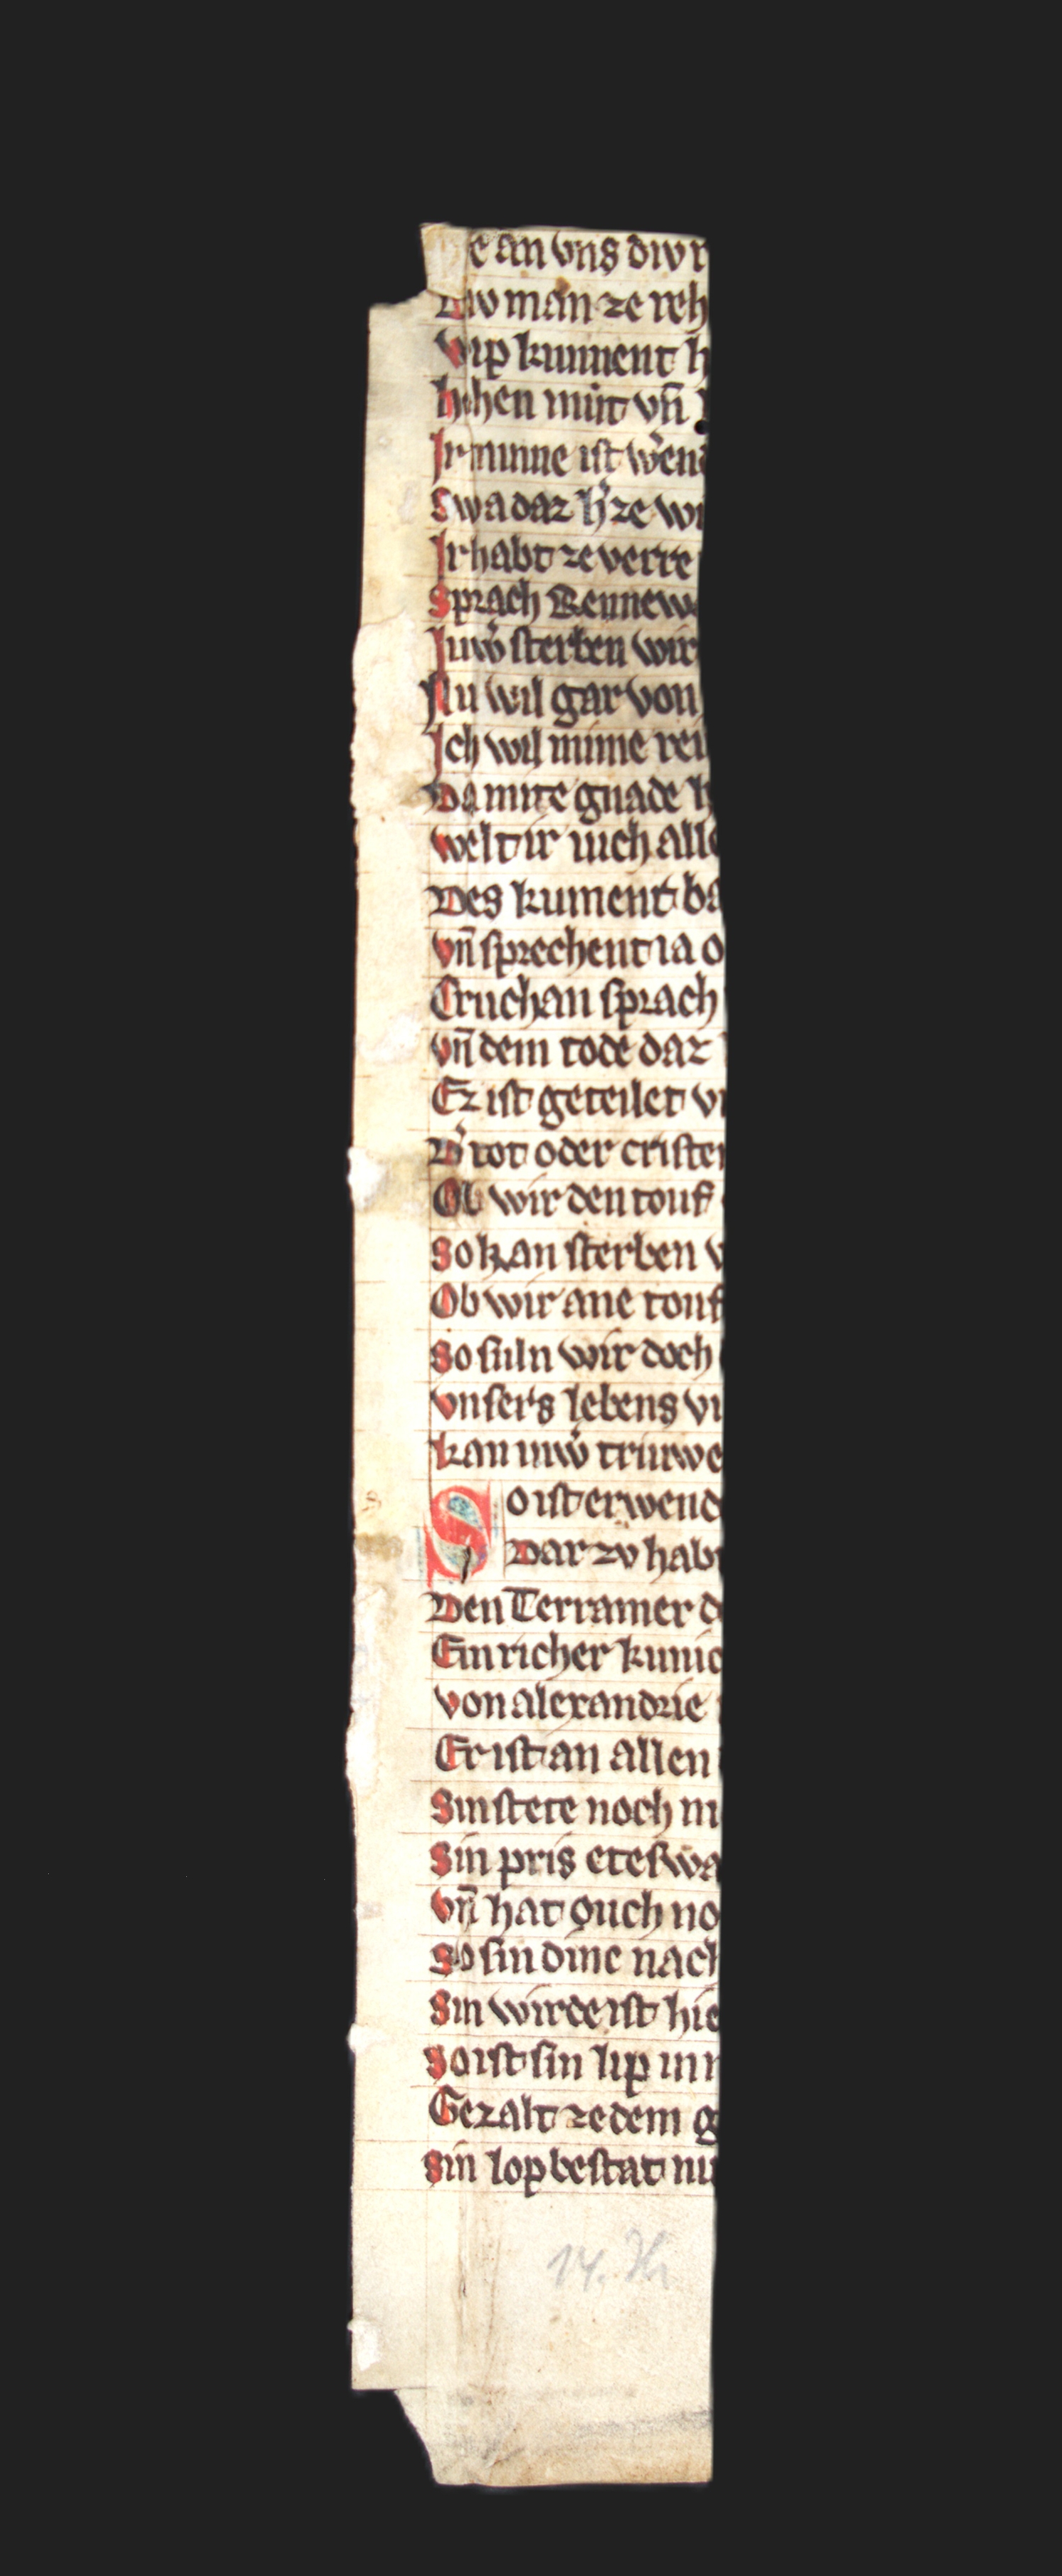 e an vns div r
Div man ze reh
Wip kument h
hohen mut vn̄
Ir minne ist w͛end
Swa daz h͛ze wi
Ir habt ze verre
Sprach Rennewa
Juw͛ sterben wir
Nu wil gar von
Ich wil mime rei
Da mite gnade h
welt ir uich alle
Des kument ba
vn̄ sprechent ia o
Cruchan sprach
vn̄ dem tode daz
Ez ist geteilet vn
D͛ tot oder cristen
Ob wir den touf
So kan sterben v
Ob wir ane touf
So suln wir doch
vnsers lebens vn
kan uiw͛ triuwe
So ist erwend
Dar zv habt
Den Terramer d
Ein richer kunic
von alexandrie
Er ist an allen
Sin stete noch ni
Sin pris eteswa
vn̄ hat ouch no
So sin dine nach
Sin wirde ist hie
So ist sin lip in r
Gezalt ze dem g
Sin lop bestat nu
14. Jh